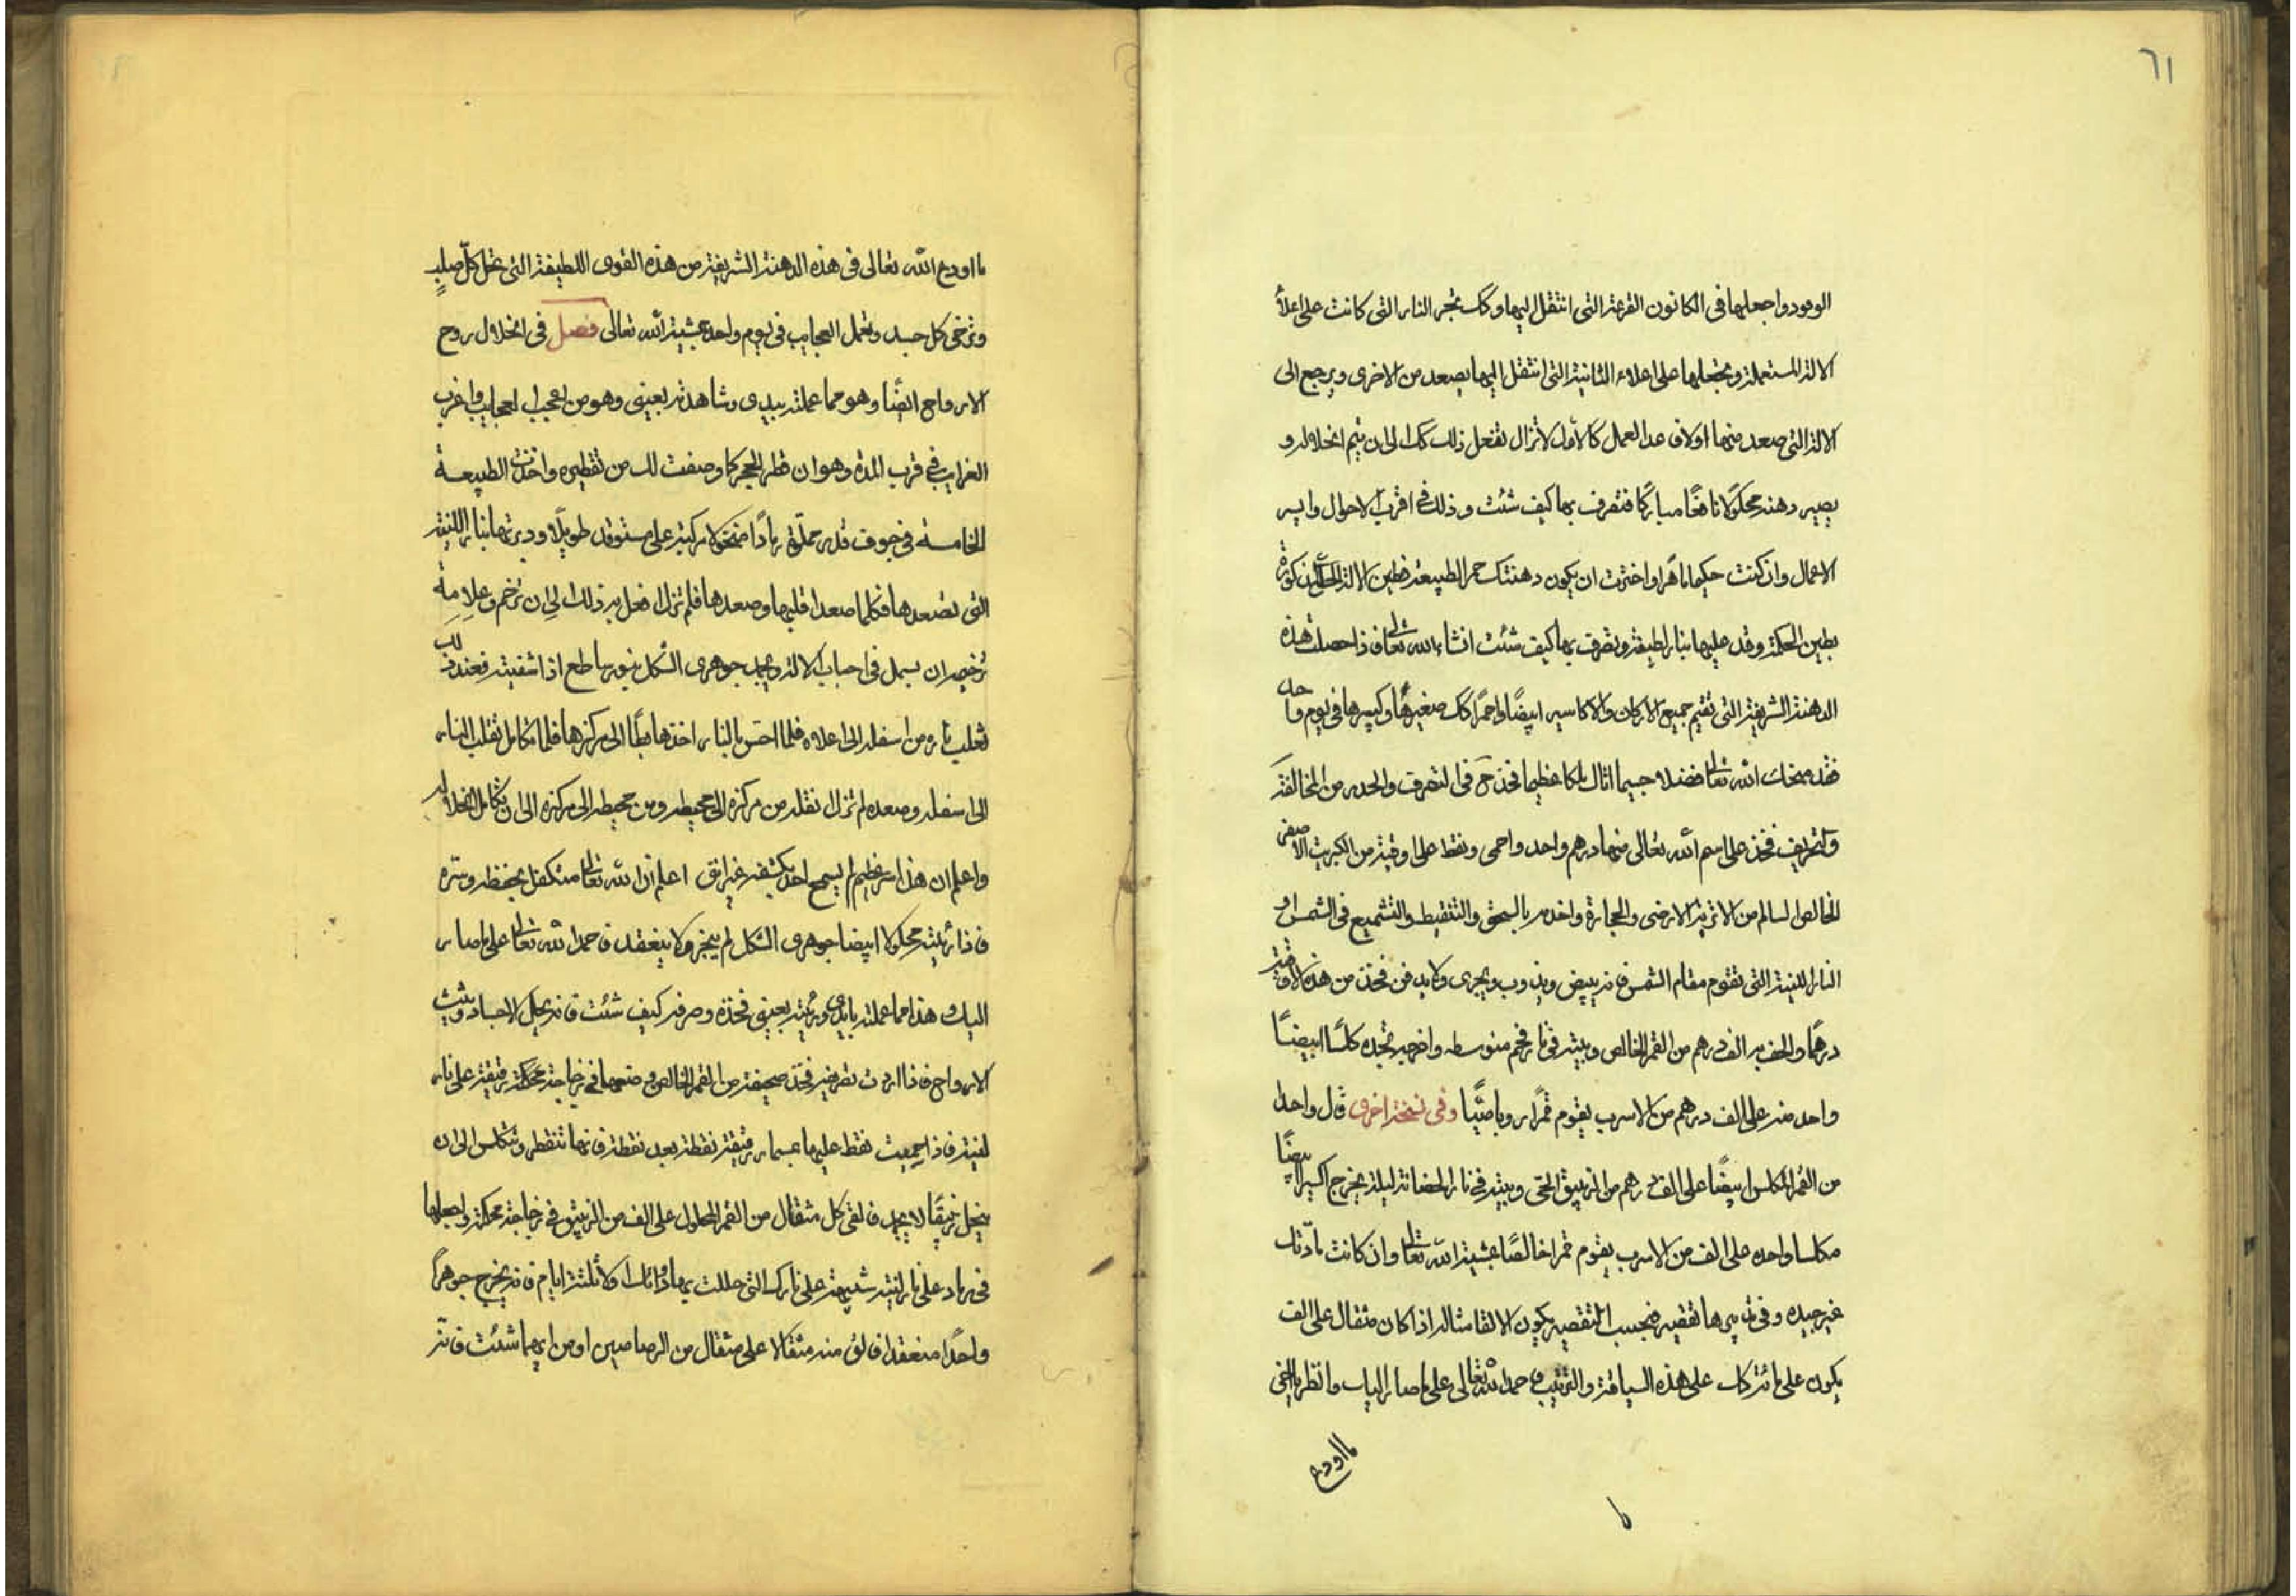 ٦١
الوقود واجعلها في الكانون القرعة التي انتقل اليها وكك تجر النار التي كانت على اعلا
الالة المستعملة وتجعلها على اعلاء الثانية التي انتقل اليها يصعد من الاخرى ويرجع الى
الالة التي صعد منها اولا فعد العمل كالأول لا تزال تفعل ذلك كك الى ان يتم انحلاله و
يصير دهنة محلولا نافعًا مباركًا فتصرف بها كيف شئت وذلك في اقرب الاحوال وايسر
الاعمال وان كنت حكيما ماهرا واخترت ان يكون دهنتك حمر الطبيعة فطين الالة المذكورة
بطين الحكمة وقد عليها بنار لطيفة وتصرف بها كيف شئت انشاء الله تعالى فاذا حصلت هذه
الدهنة الشريفة التي تقيم جميع الاركان والاكاسير ابيضًا واحمرًا كك صغيرها وكبيرها في يوم واحد
فقد منحك الله تعالى فضلا جسيما انال ملكا عظيما فخذ ح في التصرف والحذر من المخالفة
والتحريف فخذ على اسم الله تعالى منها درهم واحد واحمى ونقط على اوقية من الكبريت الاصفر
الخالص السالم من الاتربة الارضى والحجارة واخدمه بالسحق والتنقيط والتشميع في الشمس او
النار اللينة التي تقوم مقام الشمس فانه يبيض ويذوب ويجرى ولا يدخن فخذ من هذه الاوقية
درهمًا والحف به الف درهم من القمر الخالص وبيته في نار فحم متوسطه واخرجه تجده كلسًا ابيضًا
واحد منه على الف درهم من الاسرب يقوم قمرًا روباصيًا وفي نسخة اخرى قال واحدا
من القمر المكلس ابيضًا على الف درهم من الزيبق الحى وبيته في نار الحضانة ليلة يخرج اكسيرا ابيضًا
مكلسا واحده على الف من الاسرب يقوم قمرا خالصًا بمشية الله تعالى وان كانت مادتك
غير جيده وفي تدبيرها تقصير فبحسب التقصير يكون الالقا مثاله اذا كان مثقال على الف
يكون على مائة كك على هذه السياقة والترتيب فاحمد الله تعالى على ما صار اليك وانظر يا اخى
ما اودع
ما اودع الله تعالى في هذه الدهنة الشريفة من هذه القوى اللطيفة التي تحل كل صلبٍ
وترخى كل جسد وتعمل العجايب في يوم واحد بمشية الله تعالى فصل في انحلال روح
الارواح ايضًا وهو مما عملته بيدى وشاهدته بعينى وهو من اعجب العجايب واغرب
الغرايب في قرب المدة وهو ان قطر الحجر كما وصفت لك من تقطيره واخذت الطبيعة
الخامسة في جوف قدر حملته رمادًا منخولا مركبة على مستوقد طويلا ودبرتها بنار اللينة
التي تصعدها فكلما صعد اقلبها وصعدها فلم تزل افعل به ذلك الى ان ترخم وعلامة
ترخيمه ان يسيل في اجناب الالة وعجب جوهرى الشكل بنور ساطع اذا اشفيته فعند ذلك
تقلب ناره من اسفله الى اعلاه فلما احس بالنار اخذ هابطًا الى مركزها فلما تكامل تقلب النار
الى اسفله وصعده لم تزل نقله من مركزه الى محيطه ومن محيطه الى مركزه الى ان تكامل انحلاله
واعلم ان هذا سر عظيم لم يسمح احد بكشفه غير انى اعلم ان الله تعالى متكفل بحفظه وستره
فاذا رئيته محلولا ابيضا جوهرى الشكل لم يبخر ولا ينعقد فاحمد الله تعالى على ما صار
اليك وهذا مما عملته بايدى ورئيته بعينى فخذه وصرفه كيف شئت فانه يحل الاجساد ويثبت
الارواح فاذا اردت تصريفه فخذ صحيفة من القمر الخالص وضعها في زجاجة محكمة رقيقة على نار
لينة فاذا حميت نقط عليها بمسمار رقيقة نقطة بعد نقطة فانها تنقطر وتتكلس الى ان
ينحل زيبقًا لا يجمد فالقى كل مثقال من القمر المحلول على الف من الزيبق في زجاجة محكمة واجعلها
في رماد على نار لينة شبيهة على نارك التي حللت بها ذائك اولا ثلثة ايام فانه يخرج جوهرًا
واحدًا منعقدا فالق منه مثقالا على مثقال من الرصاصين او من ايهما شئت فانه